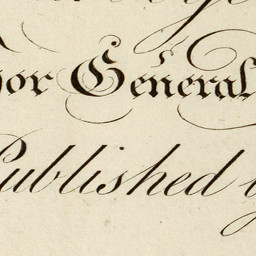 or General
Published by